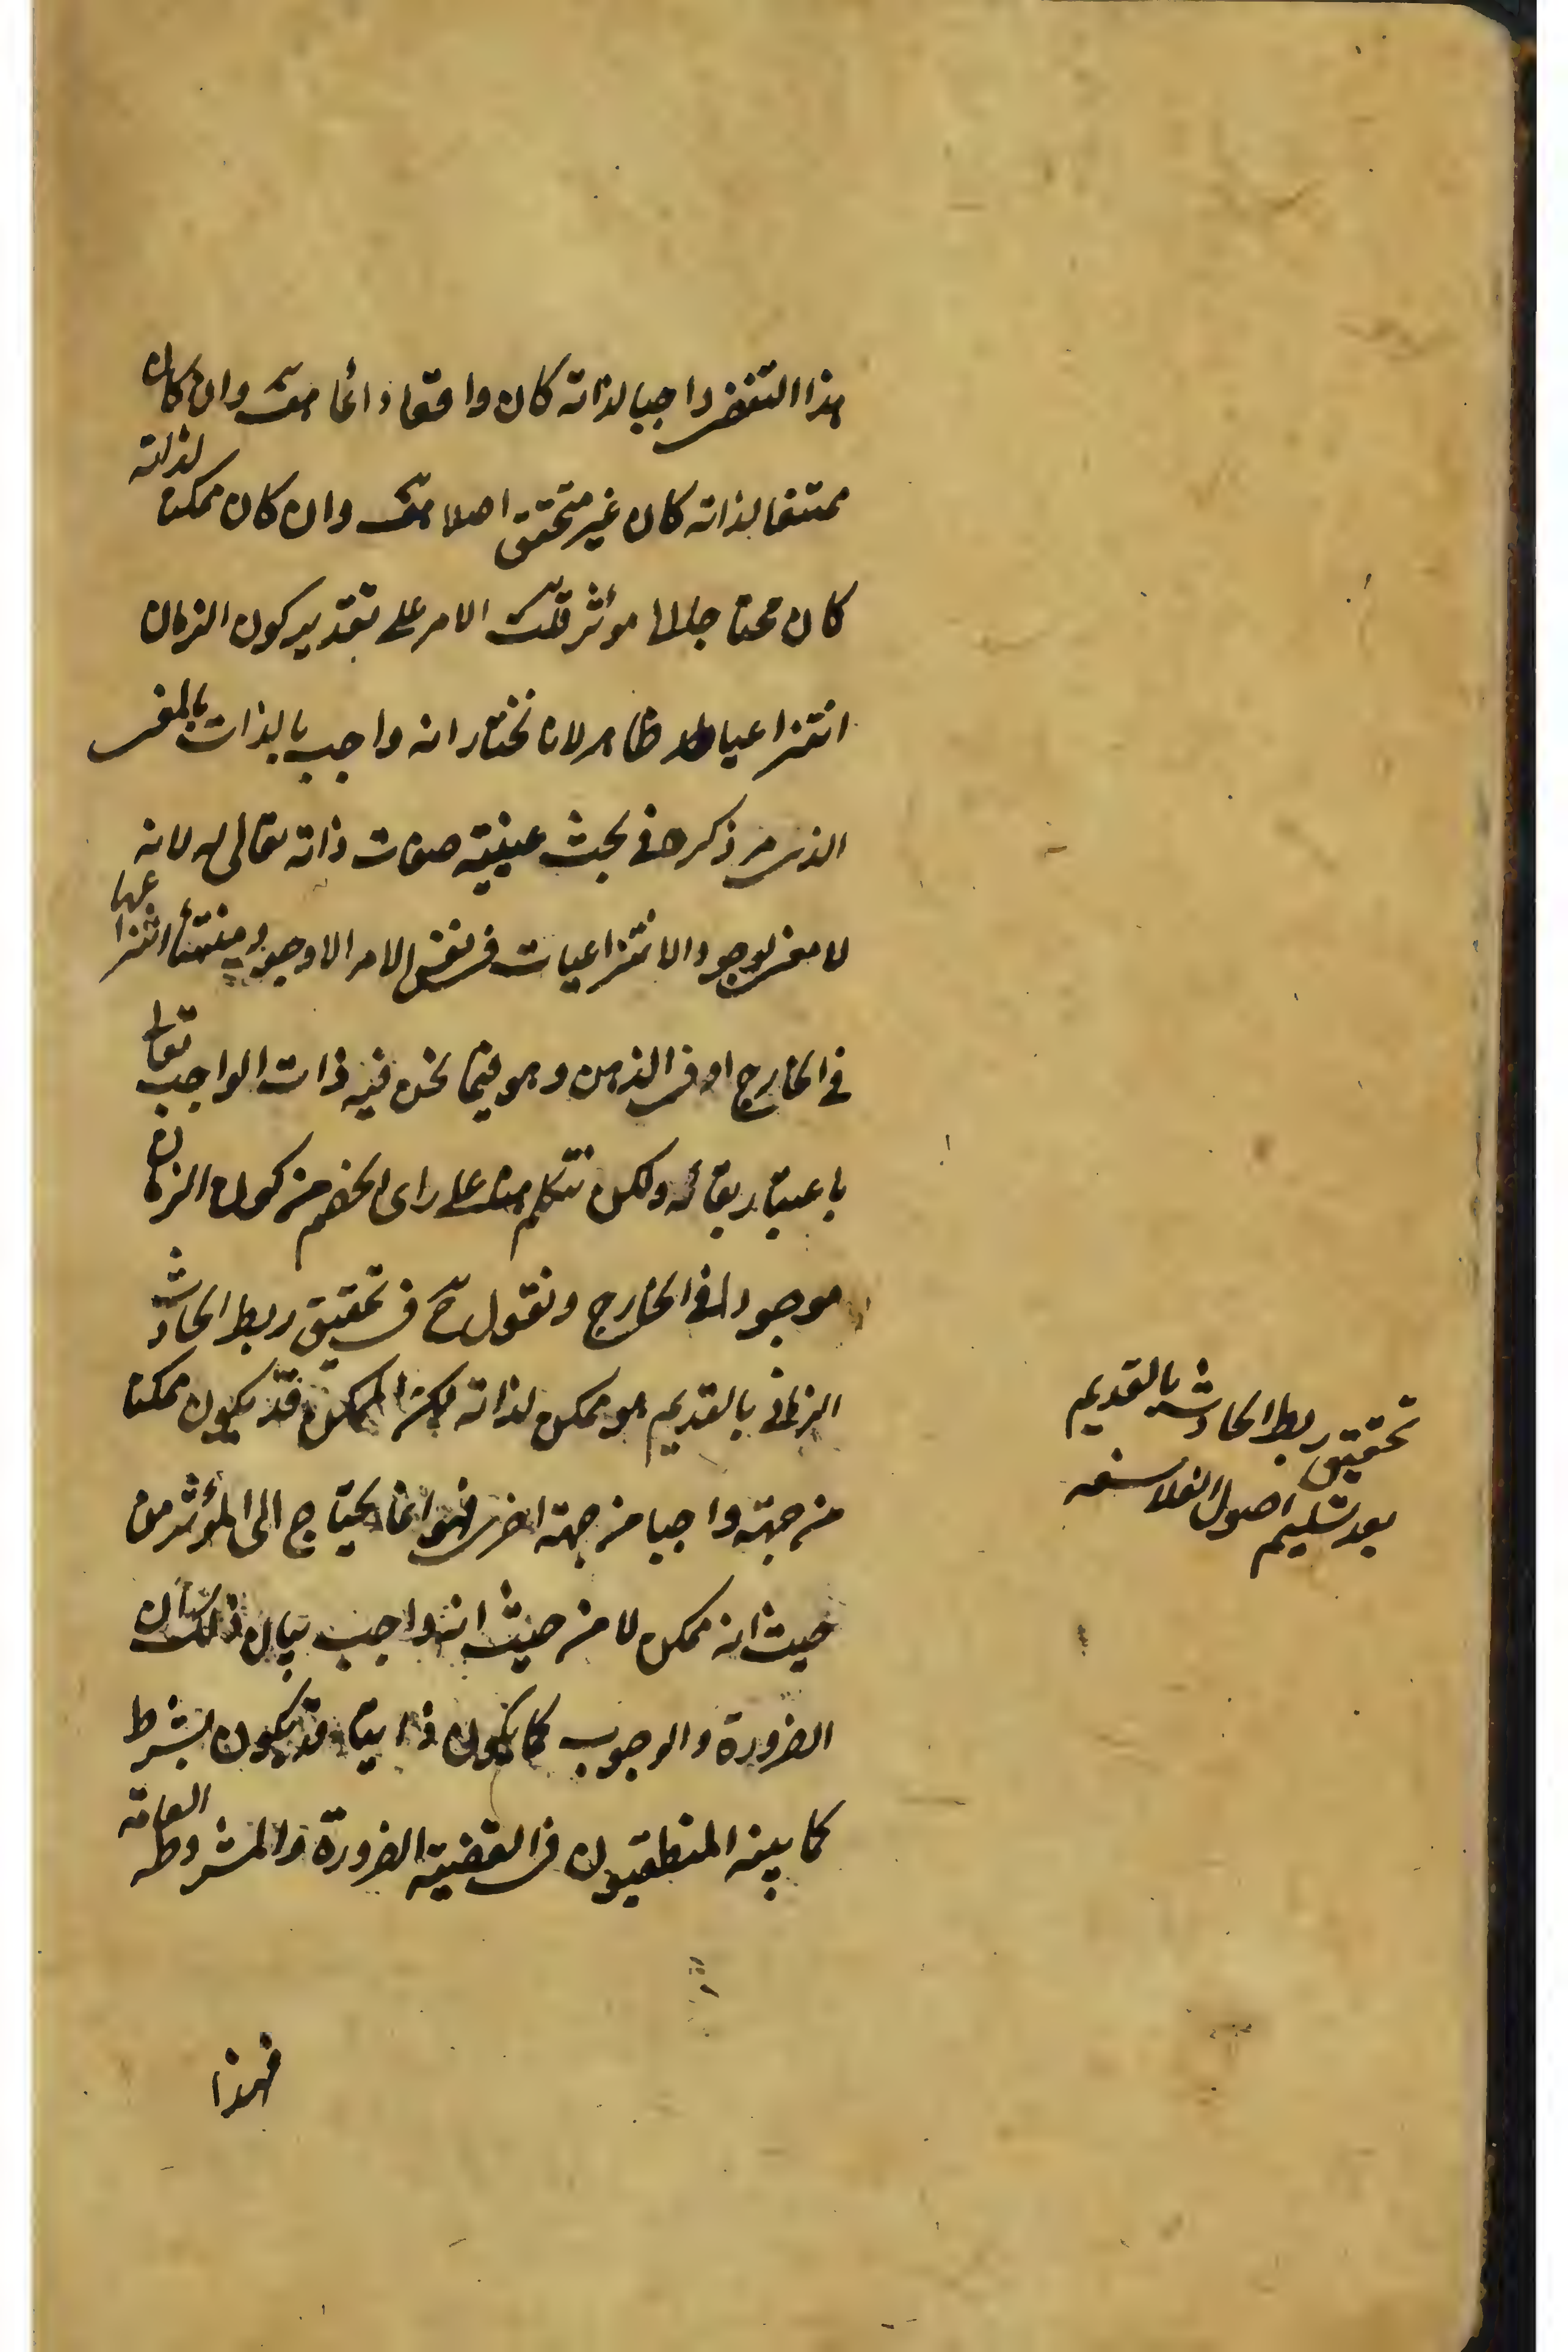 هذا التقضي واجبا لذاته كان واقعا دائما هف وان كان
ممتنعا لذاته كان غير متحقق اصلا هف وان كان ممكنا لذاته
كان محتاجا الى مؤثر قلت الامر على تقدير كون الزمان
انتزاعيا ظاهر لانا نختار انه واجب بالذات بالمعنى
الذى مر ذكره فى بحث عينية صفات ذاته تعالى له لانه
لا معنى لوجود الانتزاعيات فى نفس الامر الا وجود منشأ انتزاعها
فى الخارج او فى الذهن وهو فيما نحن فيه ذات الواجب تعالى
باعتبار بقائه ولكن نتكلم هنا على راى الخصم من كون الزمان
موجودا فى الخارج ونقول ح فى تحقيق ربط الحادث
الزمانى بالقديم هو ممكن لذاته لكن الممكن قد يكون ممكنا
من جهة واجبا من جهة اخرى فهو انما يحتاج الى المؤثر من
حيث انه ممكن لا من حيث انه واجب بيان ذلك ان
الضرورة والوجوب كما يكون ذاتيا قد يكون بشرط
كما بينه المنطقيون فى القضية الضرورة والمشروطة العامة
فهذا
تحقيق ربط الحادث بالقديم
بعد تسليم اصول الفلاسفه